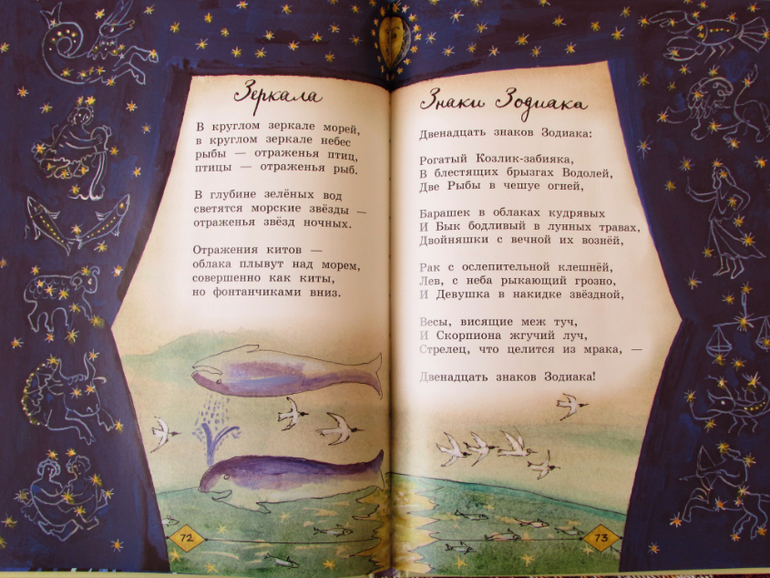 Зеркала
В круглом зеркале морей,
в круглом зеркале небес
рыбы — отраженья птиц,
птицы — отраженья рыб.
В глубине зелёных вод
светятся морские звёзды —
отраженья звёзд ночных.
Отражения китов —
облака плывут над морем,
совершенно как киты,
но фонтанчиками вниз.
72
Знаки Зодиака
Двенадцать знаков Зодиака:
Рогатый Козлик-забияка,
В блестящих брызгах Водолей,
Две Рыбы в чешуе огней,
Барашек в облаках кудрявых
И Бык бодливый в лунных травах,
Двойняшки с вечной их вознёй,
Рак с ослепительной клешнёй,
Лев, с неба рыкающий грозно,
И Девушка в накидке звёздной,
Весы, висящие меж туч,
И Скорпиона жгучий луч,
Стрелец, что целится из мрака, —
Двенадцать знаков Зодиака!
73